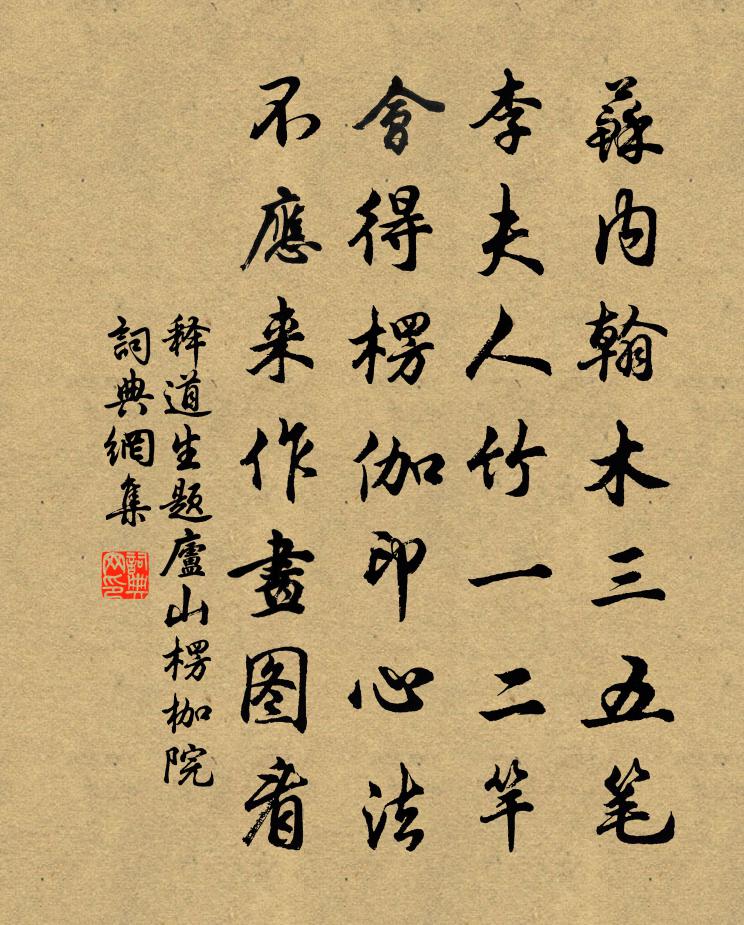 蘇内翰木三五笔
李夫人竹一二竿
會得楞伽印心法
不應来作畫图看
释道生题廬山楞枷院
詞典網集
詞典